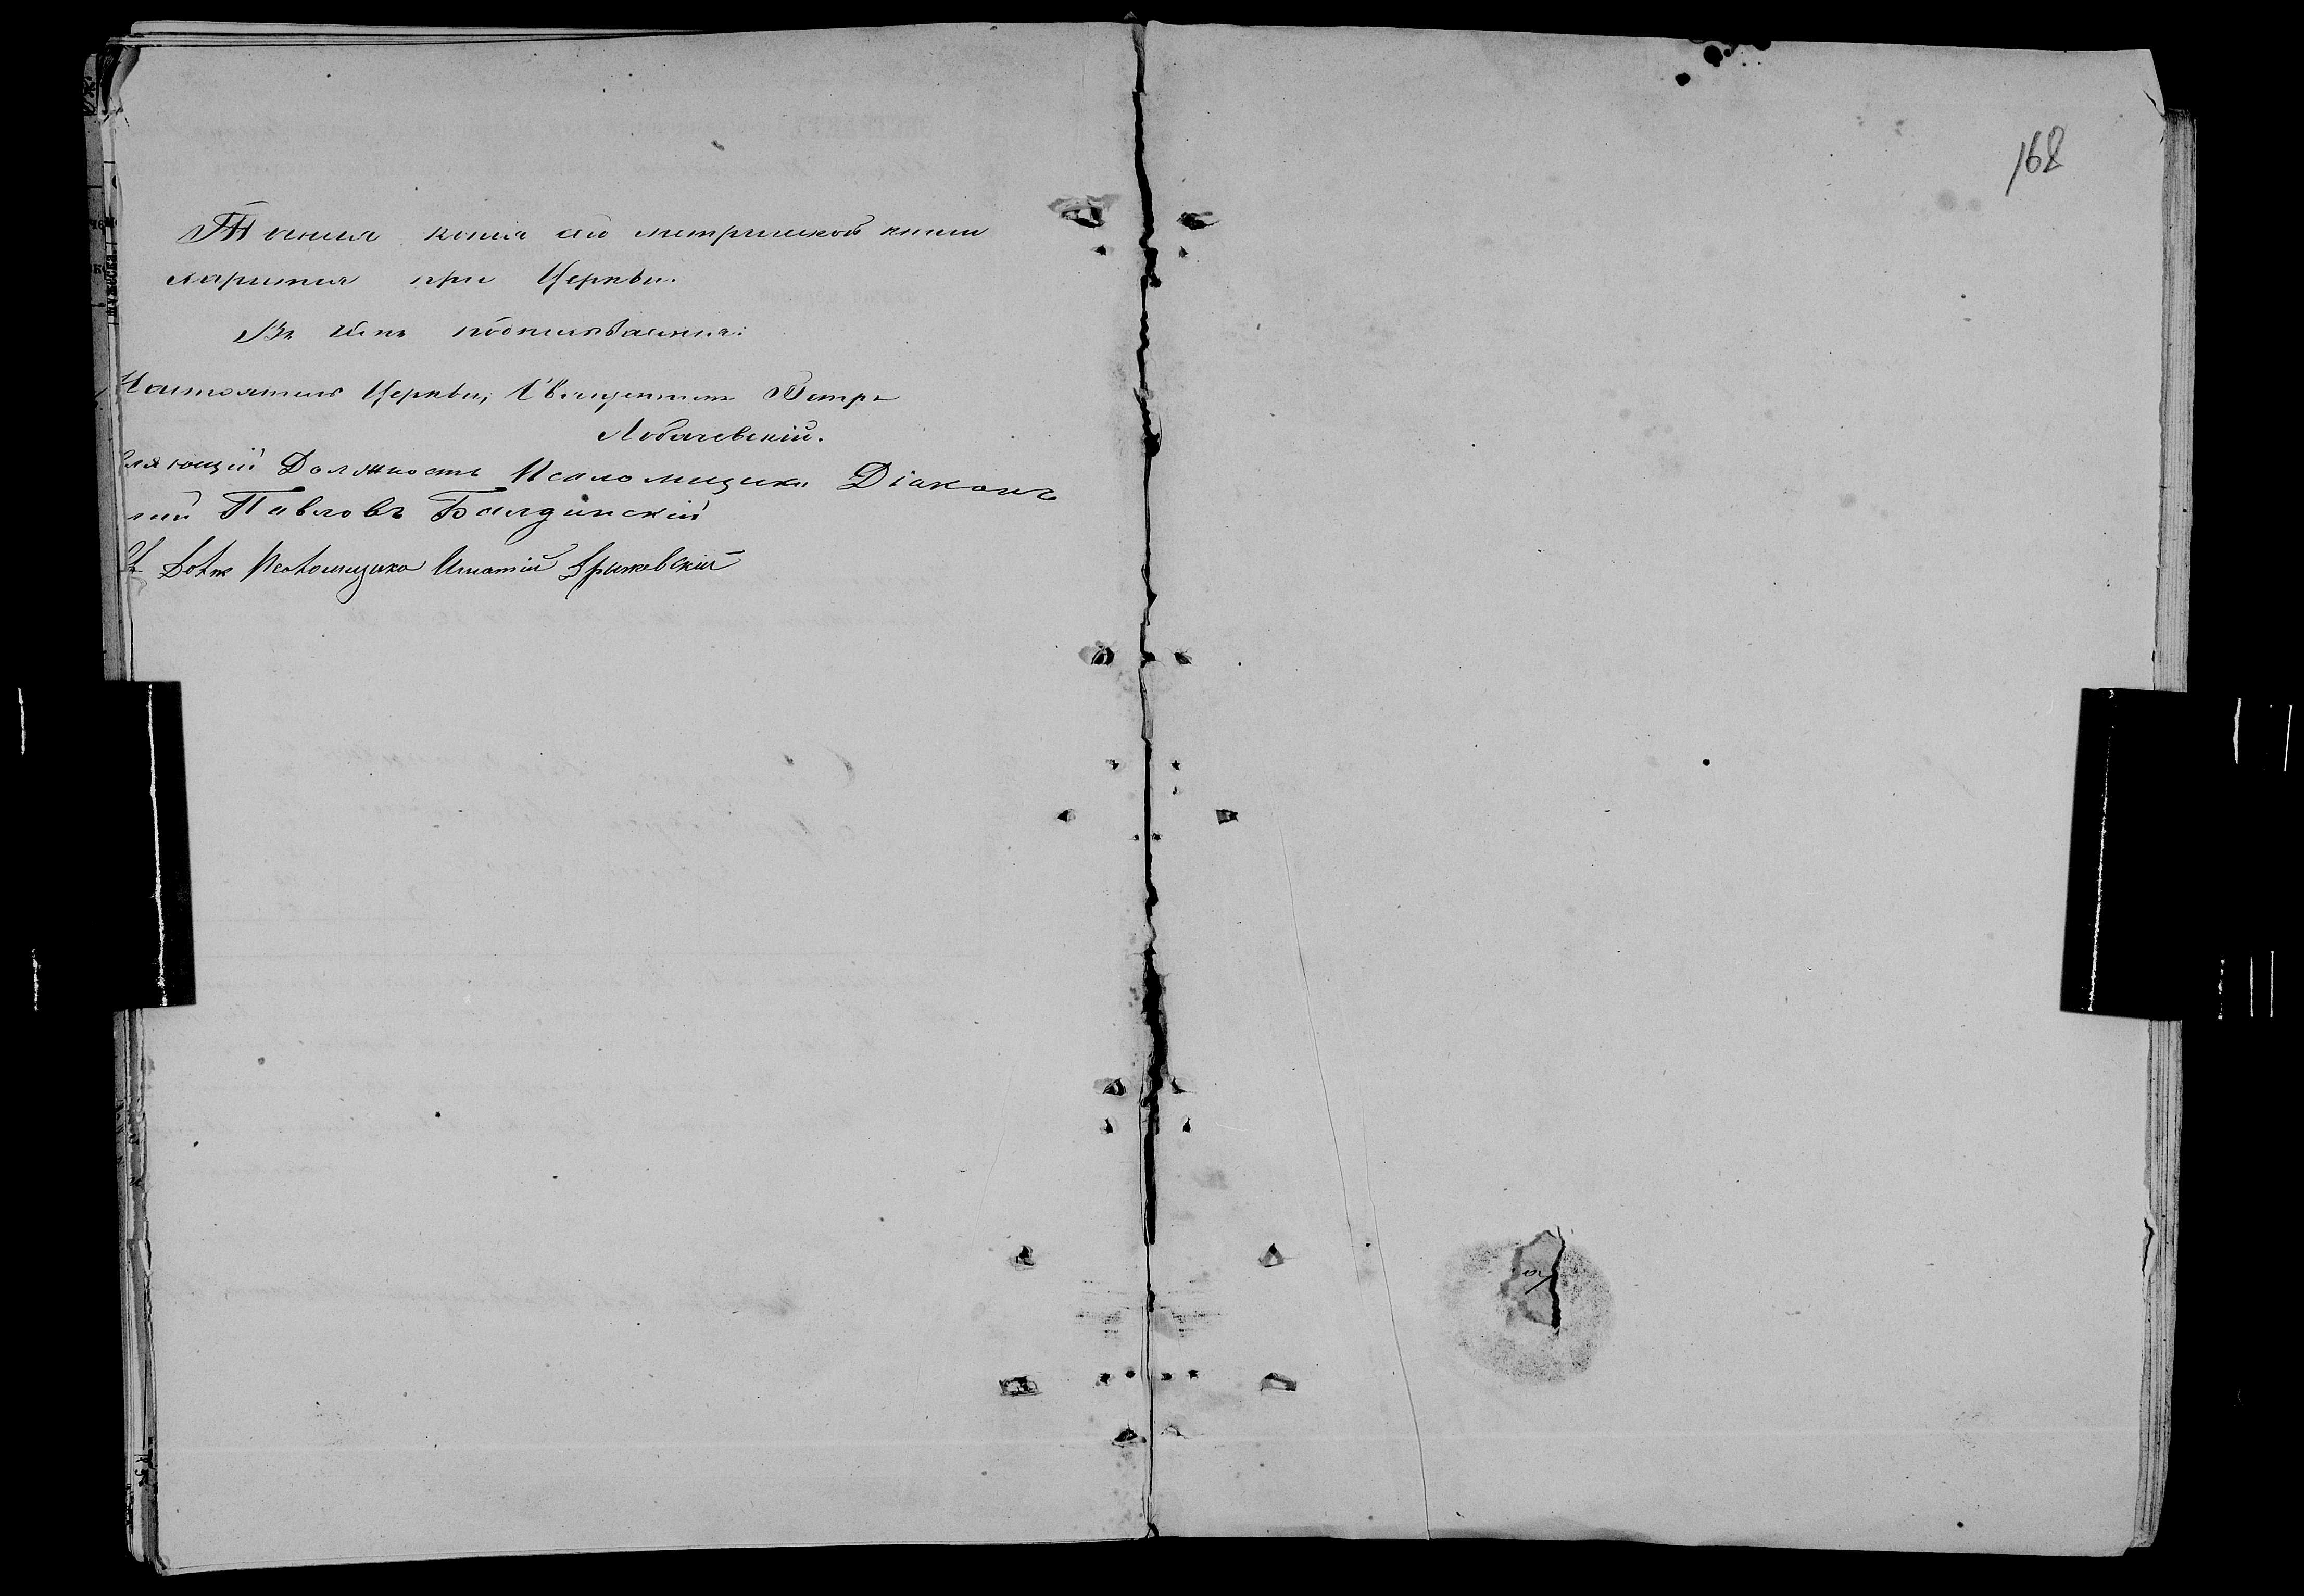 Точная копія сей метрической книги
хранится при Церкви.
Въ чемъ подписываемся:
Настоятель Церкви, Священникъ Петръ
Лобачевскій.
вляющій Должность Псаломщика Діаконъ
Павловъ Балдинскій
И Долж Псаломщика Игнатій Крыжевскій
168